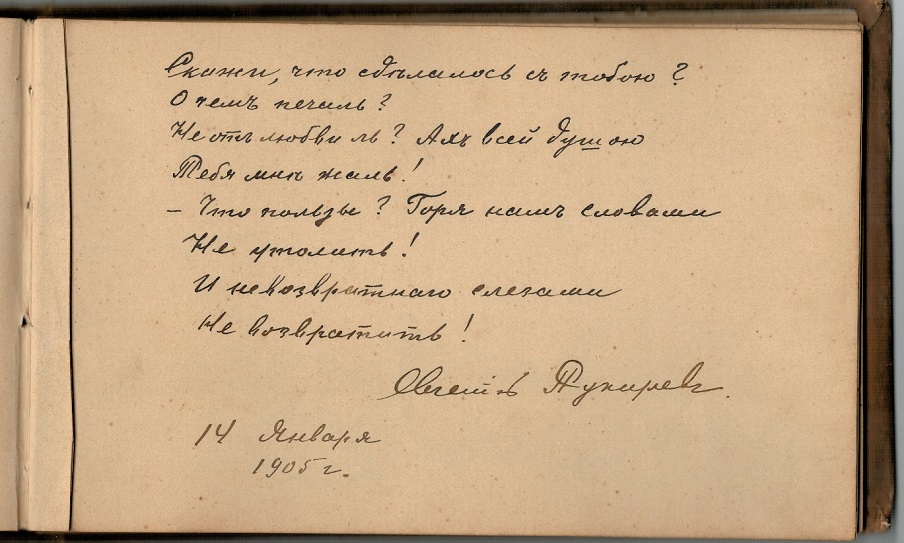 Скажи, что сдѣлалось съ тобою?
О чемъ печаль?
Не отъ любви ль? Ахъ всей душою
Тебя мнѣ жаль!
– Что пользы? Горя намъ словами
Не утолить!
И невозвратнаго слезами
Не возвратить!
Евгеній
14 Января
1905 г.